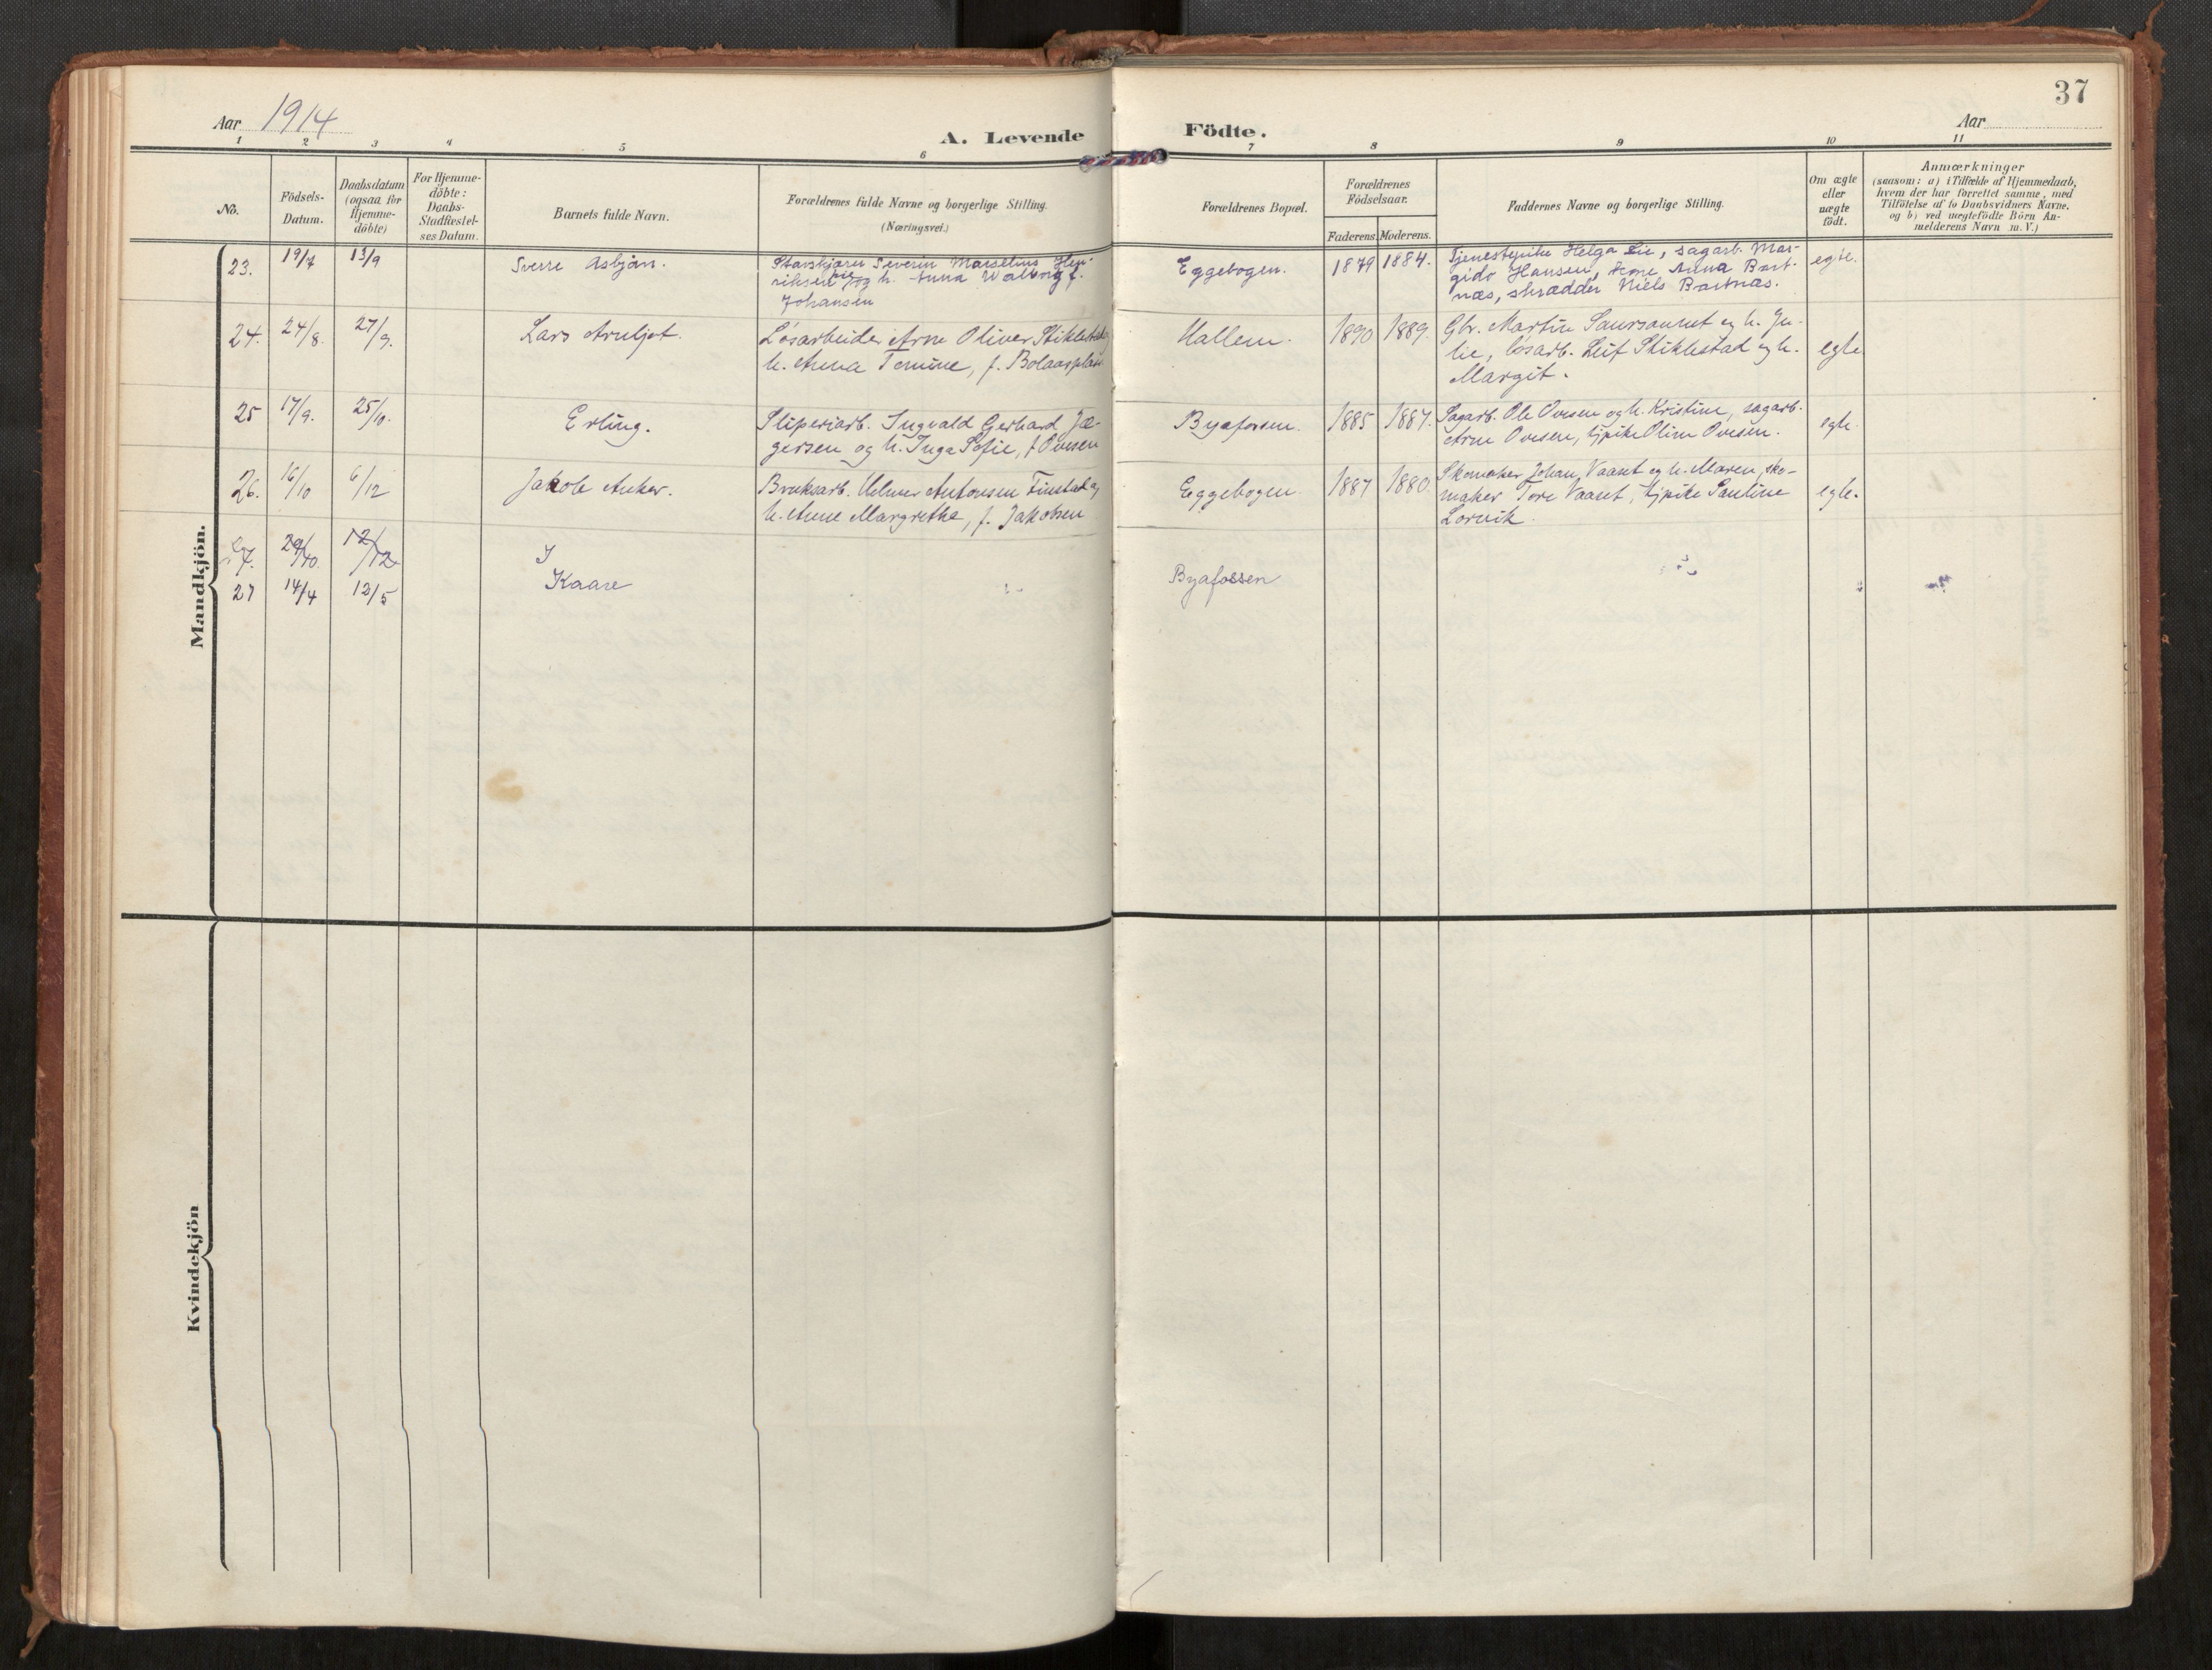 Aar 1914
A. Levende
Födte.
37
Aar
1 2 3 4 5 6 7 8 9 10 11
No.
Födsels-
Datum.
Daabsdatum
(ogsaa for
Hjemme-
döbte)
For Hjemme-
döbte:
Daabs-
Stadfæstel-
ses Datum.
Barnets fulde Navn.
Forældrenes fulde Navne og borgerlige Stilling.
(Næringsvei.)
Forældrenes Bopæl.
Forældrenes
Födselsaar.
Faderens. Moderens.
Faddernes Navne og borgerlige Stilling.
Om ægte
eller
uægte
födt.
Anmærkninger
(saasom: a) i Tilfælde af Hjemmedaab,
hvem der har forrettet samme, med
Tilföielse af to Daabsvidners Navne.
og b) ved uægtefödte Börn An-
melderens Navn m. V.)
Mandkjön.
23. 19/7 13/9 Sverre Asbjørn.
Severin Marselius Hen-
riksen Lie og h. Anna Walborg f.
Johansen
Eggebogen. 1879 1884.
Tjenestepike Helga Lie, sagarb. Mar-
gido Hansen, Anna Bart-
næs, skrædder Niels Bartnæs.
egte.
24. 24/8. 27/9. Lars Arnljot.
Løsarbeider Arne Oliver Stiklestad og
h. Anna Tomine, f. Bolaasplass
Hallem. 1890 1889.
Gbr. Martin Saursaunet og h. Ju-
lie, løsarb. Leif Stiklestad og h.
Margit.
egte
25 17/9. 25/10. Erling.
Sliperiarb. Ingvald Gerhard Jæ-
gersen og h. Inga Sofie, f. Ovesen
Byafossen. 1885 1887.
Sagarb. Ole Ovesen og h. Kristine, sagarb.
Arne Ovesen, tjpike Oline Ovesen.
egte
26. 16/10 6/12 Jakob Anker.
Bruksarb. Helmer Antonsen Finstad og
h. Anne Margrethe, f. Jakobsen
Eggebogen. 1887 1880.
Skomaker Johan Vaaset og h. Maren, sko-
maker Tore Vaaset, tjpike Pauline
Lorvik.
egte.
27. 29/10. 12/12
I
27 14/4 12/5 Kaare
Byafossen
Kvindekjön